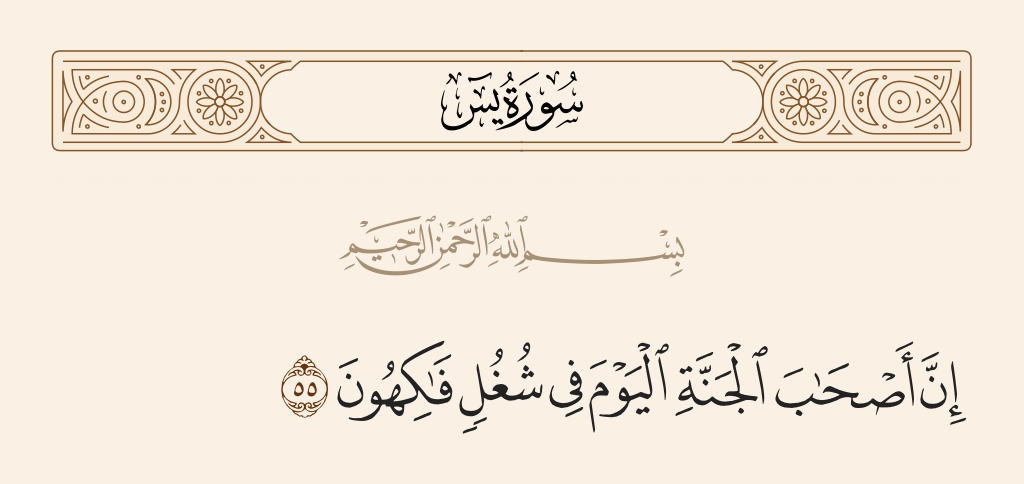 سُورَةُ يسٓ
بِسْمِ ٱللَّهِ ٱلرَّحْمَٰنِ ٱلرَّحِيمِ
إِنَّ أَصْحَٰبَ ٱلْجَنَّةِ ٱلْيَوْمَ فِى شُغُلٍ فَٰكِهُونَ ٥٥